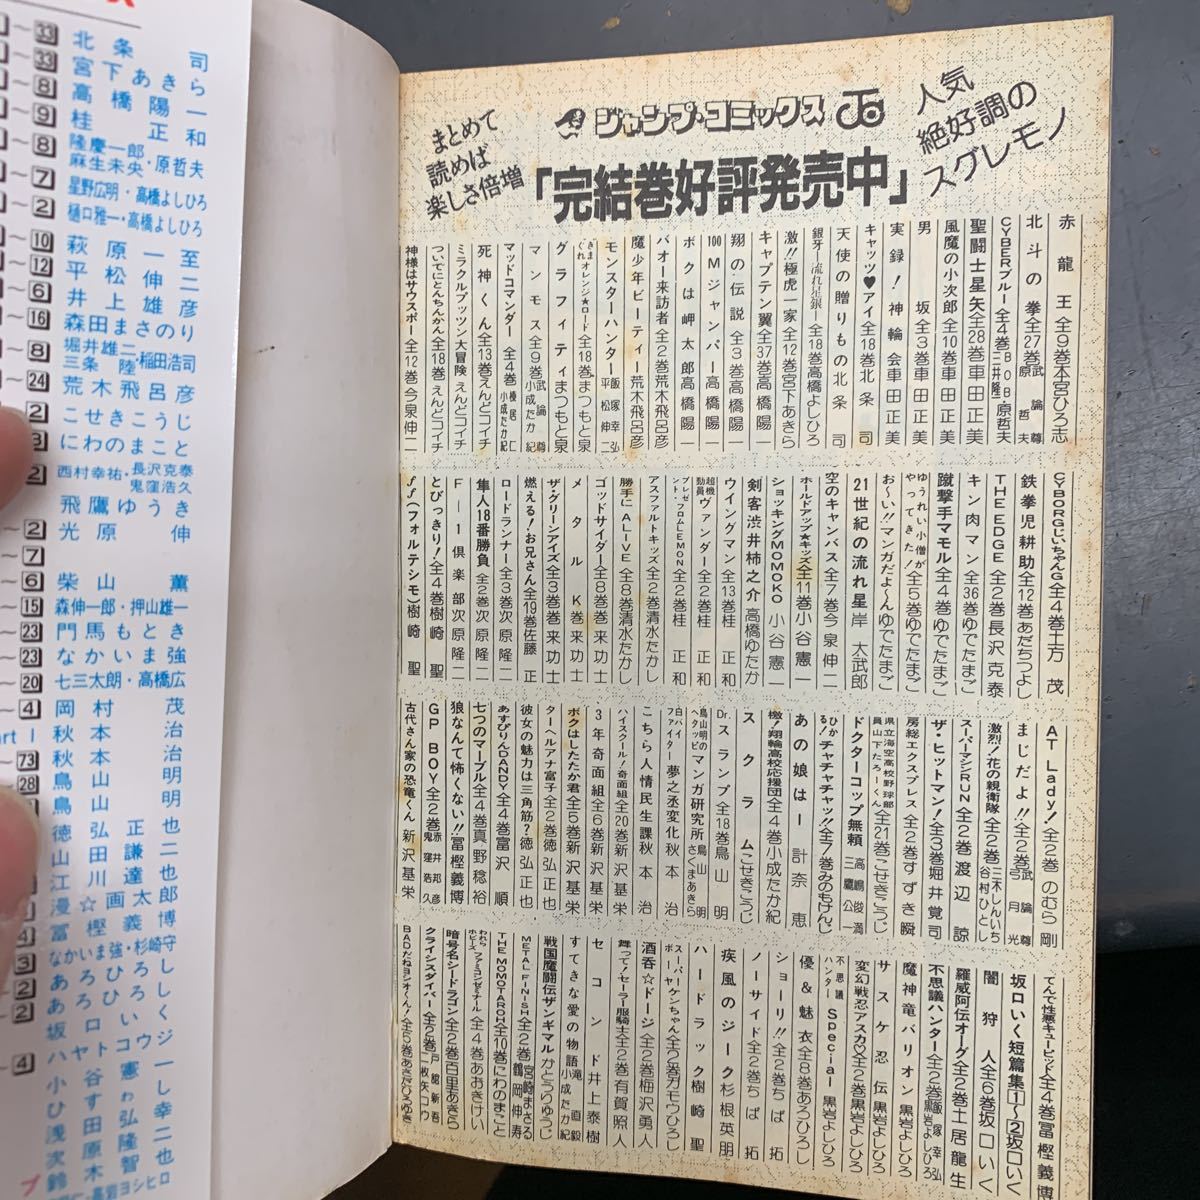 ～33 北条司
～33 宮下あきら
～8 高橋陽一
～9 桂正和
～8 隆慶一郎 麻生未央・原哲夫
～7 星野広明・高橋よしひろ
～2 樋口雅一・高橋よしひろ
～10 萩原一至
～12 平松伸二
～6 井上雄彦
～16 森田まさのり
～8 堀井雄二 三条陸・稲田浩司
～24 荒木飛呂彦
2 こせきこうじ
にわのまこと
2 西村幸祐・長沢克泰 鬼窪浩久
飛鷹ゆうき
～2 光原伸
～7
～6 柴山薫
～15 森伸一郎・押山雄一
～23 門馬もとき
～23 なかいま強
～20 七三太朗・高橋広
～4 岡村茂
art I 秋本治
～73 秋本治
～28 鳥山明
鳥山明
徳弘正也
山田謙二
江川達也
漫☆画太郎
4 冨樫義博
3 なかいま強・杉崎守
2 あろひろし
2 あろひろし
坂口いく
～4 ハヤトコウジ
小谷憲一
ひすわし
浅田弘幸
次原隆二
鈴木智也
まとめて
読めば
楽しさ倍増
ジャンプ・コミックス
人気
絶好調の
スグレモノ
「完結巻好評発売中」
赤龍王 全9巻 本宮ひろ志
北斗の拳 全27巻 武論尊 原哲夫
CYBERブルー 全4巻 BOB・原哲夫 三井隆一
聖闘士星矢 全28巻 車田正美
風魔の小次郎 全10巻 車田正美
男坂 全3巻 車田正美
実録!神輪会 車田正美
キャッツ♥アイ 全18巻 北条司
天使の贈りもの 北条司
銀牙-流れ星 銀- 全18巻 高橋よしひろ
激!!極虎一家 全12巻 宮下あきら
キャプテン翼 全37巻 高橋陽一
翔の伝説 全3巻 高橋陽一
100Mジャンパー 高橋陽一
ボクは岬太郎 高橋陽一
バオー来訪者 全2巻 荒木飛呂彦
魔少年ビーティー 荒木飛呂彦
モンスターハンター 飯塚幸弘 平松伸二
きまぐれオレンジ★ロード 全18巻 まつもと泉
グラフィティ まつもと泉
マンモス 全9巻 武論尊 小成たか紀
マッドコマンダー 全4巻 榛居仁 小成たか紀
死神くん 全13巻 えんどコイチ
ミラクルプッツン大冒険 えんどコイチ
ついでにとんちんかん 全18巻 えんどコイチ
神様はサウスポー 全12巻 今泉伸二
CYBORGじいちゃんG 全4巻 土方茂
鉄拳児耕助 全12巻 あだちつよし
THE EDGE 全2巻 長沢克泰
キン肉マン 全36巻 ゆでたまご
蹴撃手マモル 全4巻 ゆでたまご
ゆうれい小僧がやってきた! 全5巻 ゆでたまご
お～い!!マンガだよ～ん ゆでたまご
21世紀の流れ星 岸大武郎
空のキャンバス 全7巻 今泉伸二
ホールドアップ★キッズ 全11巻 小谷憲一
ショッキングMOMOKO 小谷憲一
剣客渋井柿之介 高橋ゆたか
ウイングマン 全13巻 桂正和
超機動員ヴァンダー 全2巻 桂正和
プレゼント・フロムLEMON 全2巻 桂正和
アスファルトキッズ 全2巻 清水たかし
勝手にALIVE 全8巻 清水たかし
ゴッドサイダー 全8巻 巻来功士
メタルK 巻来功士
ザ・グリーンアイズ 全3巻 巻来功士
燃える!お兄さん 全19巻 佐藤正
ロードランナー 全3巻 次原隆二
隼人18番勝負 全2巻 次原隆二
F-1倶楽部 次原隆二
とびっきり! 全4巻 樹崎聖
ff(フォルテシモ) 樹崎聖
AT Lady! 全2巻 のむら剛
まじだよ!! 全2巻 武論尊 弓月光
激烈!花の親衛隊 全2巻 三木しんいち 谷村ひとし
スーパーマシンRUN 全2巻 渡辺諒
ザ・ヒットマン! 全3巻 堀井覚司
房総エクスプレス 全2巻 すずき瞬
県立海空高校野球部員山下たろーくん 全21巻 こせきこうじ
ドクターコップ無頼 高嶋俊満 三鷹公一
ひかる!チャチャチャッ!! 全7巻 みのもけんじ
あの娘は- 計奈恵
檄!翔輪高校応援団 全4巻 小成たか紀
スクラム こせきこうじ
Dr.スランプ 全18巻 鳥山明
鳥山明のヘタッピマンガ研究所 鳥山明 さくまあきら
白バイファイター夢之丞変化 秋本治
こちら人情民生課 秋本治
ハイスクール!奇面組 全20巻 新沢基栄
3年奇面組 全6巻 新沢基栄
ボクはしたたか君 全5巻 新沢基栄
ターヘルアナ富子 全2巻 徳弘正也
彼女の魅力は三角筋? 徳弘正也
あすぴりんDANDY 全4巻 富沢順
七つのマーブル 全4巻 真野稔裕
狼なんて怖くない!! 冨樫義博
GP BOY 全2巻 赤井邦彦 鬼窪浩久
古代さん家の恐竜くん 新沢基栄
てんで性悪キューピッド 全4巻 冨樫義博
坂口いく短篇集 1～2 坂口いく
闇狩人 全6巻 坂口いく
羅威阿伝オーグ 全2巻 土居龍生
不思議ハンター 全2巻 飯塚幸弘 黒岩よしひろ
魔神竜バリオン 黒岩よしひろ
サスケ忍伝 黒岩よしひろ
変幻戦忍アスカ♡ 全2巻 黒岩よしひろ
不思議ハンターSpecial 黒岩よしひろ
優&魅衣 全8巻 あろひろし
ショーリ!! 全2巻 ちば拓
ノーサイド 全2巻 ちば拓
疾風のジーク 杉根英朋
ハードラック 樹崎聖
スーパーケンちゃん 全2巻 ガモウひろし
酒呑☆ドージ 全2巻 梅沢勇人
舞って!セーラー服騎士 全2巻 有賀照人
セコンド 井上泰樹
すてきな愛の物語 滝直毅 小成たか紀
戦国魔闘伝ザンギマル かとうゆうじ
METAL FINISH 全2巻 宮崎まさる 鶴岡伸寿
THE MOMOTAROH 全10巻 にわのまこと
わわら ファミコンゼミナールホビーズ 全4巻 あおきけい
暗号名シードラゴン 全2巻 百里あきら
クライシスダイバー 全2巻 戸舘新吾 二枚矢コウ
BADだねヨシオくん! 全5巻 あさだひろゆき